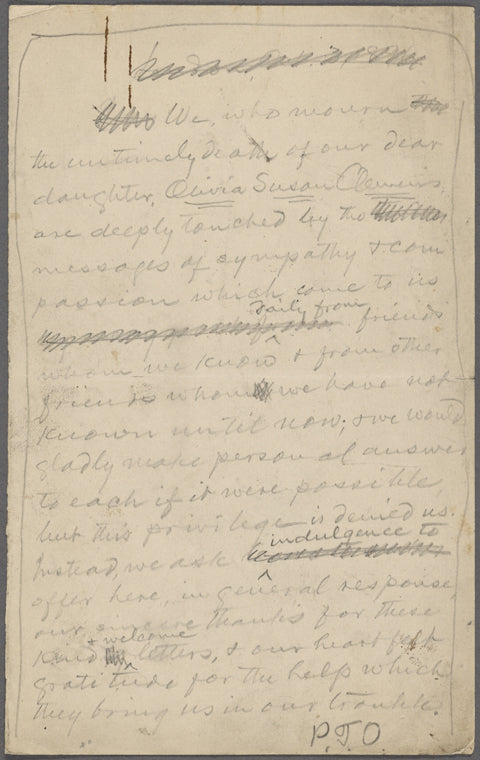 We, who mourn
the untimely death of our dear
daughter, Olivia Susan Clemens,
are deeply touched by the
messages of sympathy & com
passion which come to us
daily from
friends
whom we know & from other
friends whom we have not
known until now; & we would
gladly make personal answer
to each if it were possible,
but this privilege is denied us.
indulgence to
Instead, we ask
offer here, in general response,
our sincere thanks for these
& welcome
kind letters, & our heart felt
gratitude for the help which
they bring us in our trouble.
P T O